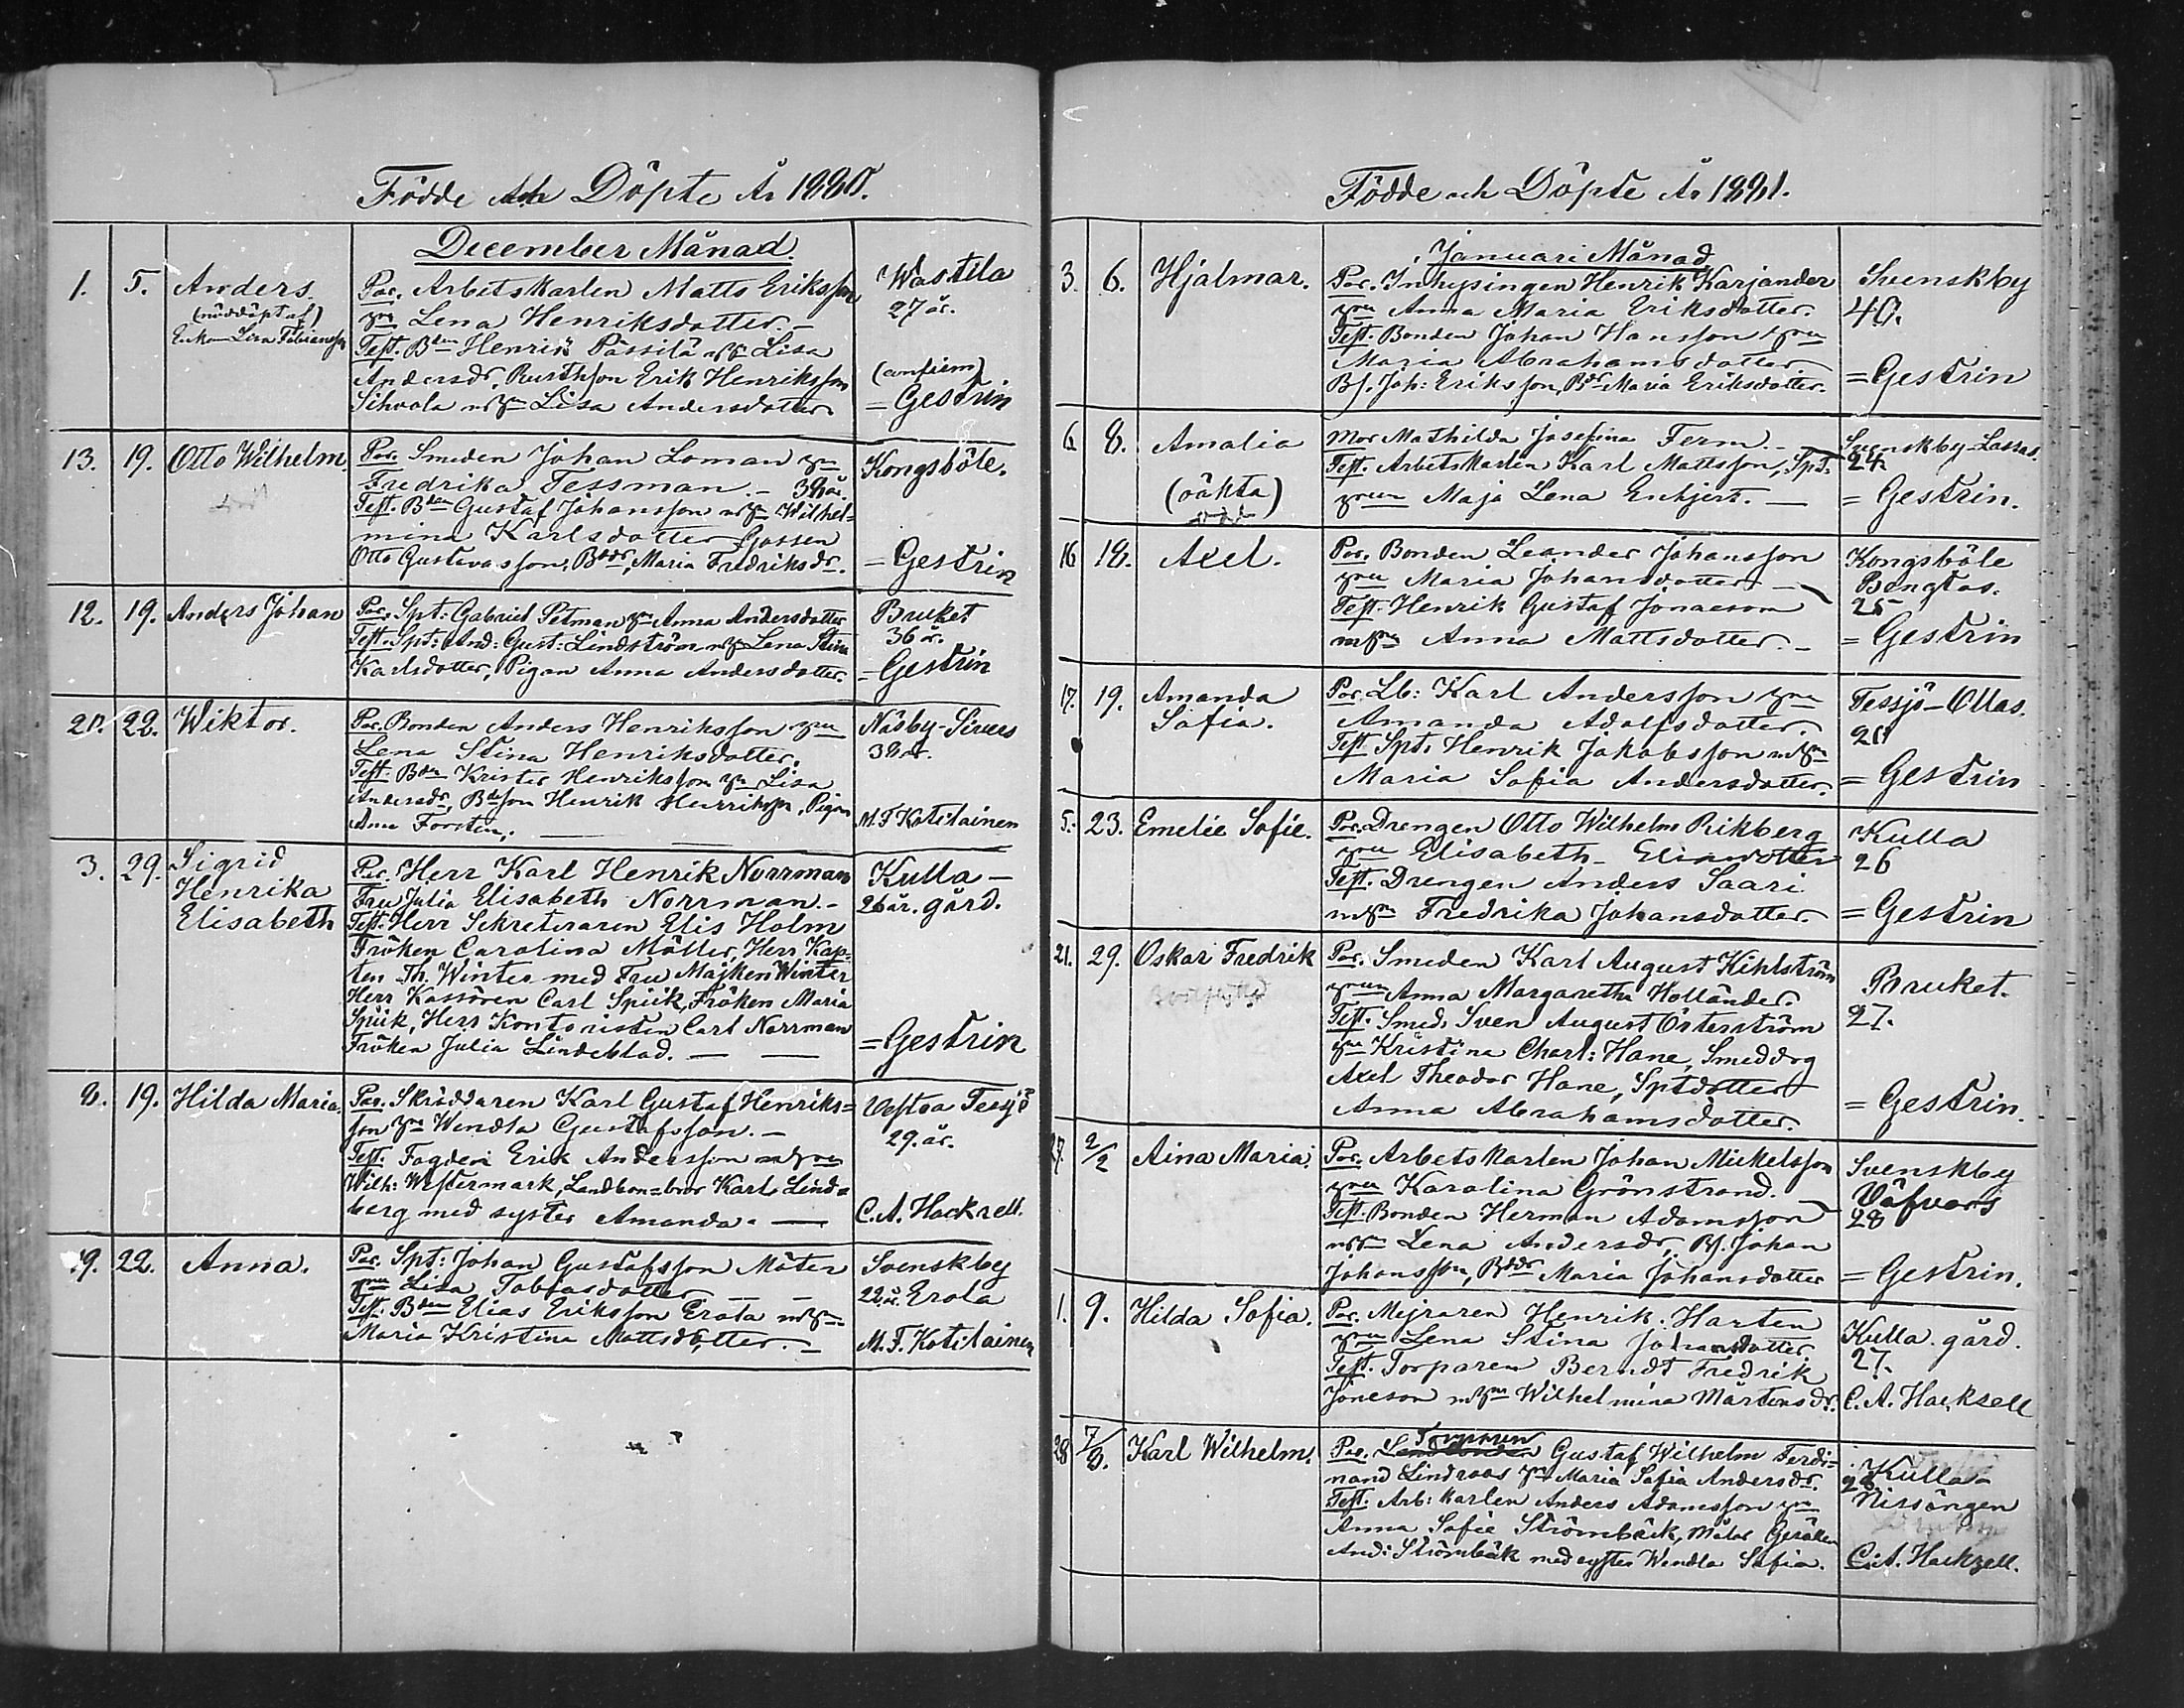 Födde och Döpte År 1880.
December Månad.
1. 5. Anders
(nöddöpt af)
Enkan Lisa Fabiansson
Par. Arbetskarlen Matts Eriksson
Lena Henriksdotter. –
Test. Bden Henrik Pässilä Lisa
Andersdr, Rusthson Erik Henriksson
Sihvola Lisa Andersdotter
Wastila
27 år.
(confirm)
= Gestrin
13. 19. Otto Wilhelm
Par. Smeden Johan Loman
Fredrika Tessman. – 38 år.
Test. Bden Gustaf Johansson Wilhel=
mina Karlsdotter, Gossen
Otto Gustavsson, Bddr, Maria Fredriksdr.
Kongsböle.
= Gestrin
12. 19. Anders Johan
Par. Spt: Gabriel Petman Anna Andersdotter
Test. Spt: And: Gust: Lindström Lena Stina
Karlsdotter, Pigan Anna Andersdotter.
Bruket
36 år.
= Gestrin
20. 22. Wiktor.
Par. Bonden Anders Henriksson
Lena Stina Henriksdotter.
Test. Bden Krister Henriksson Lisa
Andersdr, Bdeson Henrik Henriksson, Pigan
Anna Forsten.
Näsby-Sivers
38 år.
M. F. Kotilainen
3. 29. Sigrid
Henrika
Elisabeth
Par. Herr Karl Henrik Norrman
Fru Julia Elisabeth Norrman. –
Test. Herr Sekreteraren Elis Holm
Fröken Carolina Möller, Herr Kap=
ten Th. Winter med Fru Majken Winter
Herr Kassören Carl Spiik, Fröken Maria
Spiik, Herr Kontoristen Carl Norrman
Fröken Julia Lindeblad. –
Kulla –
26 år. gård.
= Gestrin
8. 19. Hilda Maria.
Par. Skräddaren Karl Gustaf Henriks=
son Wendla Gustafsson. –
Test. Fogden Erik Andersson
Wilh: Westermark, Landbon=bror Karl Lind=
berg med syster Amanda. –
Vestra Tessjö
29. år.
C. A. Hackzell.
19. 22. Anna.
Par. Spt: Johan Gustafsson Mäter
Lisa Tobiasdotter
Test. Bden Elias Eriksson Erola
Maria Kristina Mattsdotter. –
Svenskby
22 år. Erola
M. F. Kotilainen
Födde och Döpte År 1881.
Januari Månad
3. 6. Hjalmar.
Par. Inhysingen Henrik Karjander
Anna Maria Eriksdotter.
Test. Bonden Johan Hansson
Maria Abrahamsdotter
Bs. Joh: Eriksson, Bdr Maria Eriksdotter.
Svenskby
40.
= Gestrin
6 8. Amalia
(oäkta)
Mor Mathilda Josefina Ferm. –
Test. Arbetskarlen Karl Mattsson, Spt.
Maja Lena Enhjert. –
Svenskby-Lassas.
24
= Gestrin.
16 18. Axel.
Par. Bonden Leander Johansson
Maria Johansdotter –
Test. Henrik Gustaf Jonaeson
Anna Mattsdotter. –
Kongsböle
Bengtas.
25
= Gestrin
17. 19. Amanda
Sofia.
Par. Lb: Karl Andersson
Amanda Adolfsdotter.
Test Spt. Henrik Jakobsson
Maria Sofia Andersdotter.
Tessjö-Ollas.
20
= Gestrin
5. 23. Emelie Sofie.
Par. Drengen Otto Wilhelm Rikberg
Elisabeth
Test. Drengen Anders Saari
Fredrika Johansdotter.
Kulla
26
= Gestrin
21. 29. Oskar Fredrik
Par. Smeden Karl August Kihlström
Anna Margaretha Holländer.
Test. Smed. Sven August Österström
Kristina Charl: Hane, Smeddrg
Axel Theodor Hane, Sptdotter
Anna Abrahamsdotter.
Bruket.
27.
= Gestrin.
27. 2/2 Aina Maria.
Par. Arbetskarlen Johan Mickelsson
Karolina Grönstrand.
Test. Bonden Herman Adamsson
Lena Andersdr, Bs. Johan
Johansson, Bddr Maria Johansdotter
Svenskby
Väfvars
28
= Gestrin.
1. 9. Hilda Sofia.
Par. Mejraren Henrik Harten
Lena Stina Johansdotter
Test. Torparen Berndt Fredrik
Joneson Wilhelmina Mårtensdr.
Kulla gård.
27.
C. A. Hackzell
28 7/3. Karl Wilhelm.
Torparen
Par. Landbonden Gustaf Wilhelm Ferdi=
nand Lindroos Maria Sofia Andersdr.
Test. Arb: karlen Anders Adamsson
Anna Sofie Strömbäck, Målar Gesällen
And: Strömbäk med syster Wendla Sofia.
Kulla-
28.
Nissängen
C. A. Hackzell.